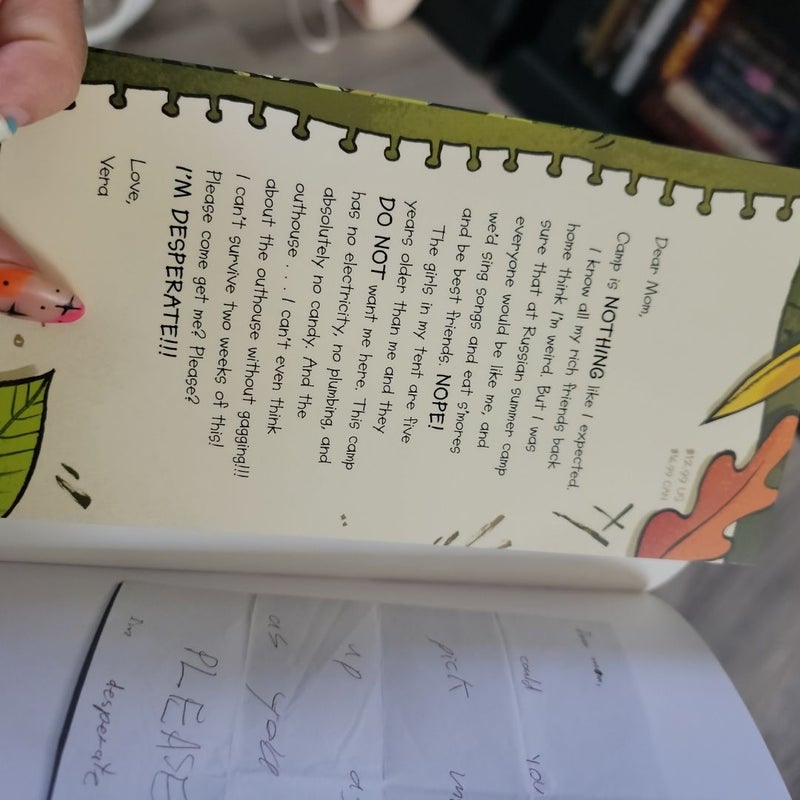 Dear Mom,
Camp is NOTHING like I expected.
I know all my rich friends back
home think I'm weird. But I was
sure that at Russian summer camp
everyone would be like me, and
we'd sing songs and eat s'mores
and be best friends. NOPE!
The girls in my tent are five
years older than me and they
DO NOT want me here. This camp
has no electricity, no plumbing, and
absolutely no candy. And the
outhouse . . . I can't even think
about the outhouse without gagging!!!
I can't survive two weeks of this!
Please come get me? Please?
I'M DESPERATE!!!
Love,
Vera
$12.99 US
$16.99 CAN
mom,
could you
pick
up
as you
PLEASE
I'm desperate